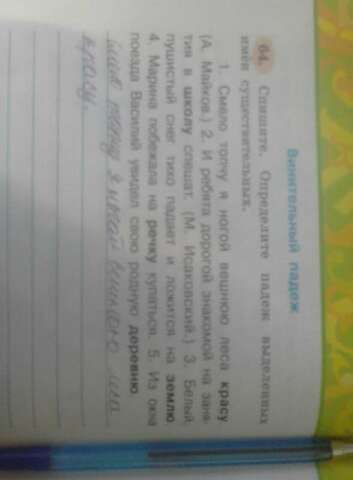 Винительный падеж
64. Спишите. Определите падеж выделенных
имён существительных.
1. Смело топчу я ногой вешнюю леса красу
(А. Майков.) 2. И ребята дорогой знакомой на заня-
тия в школу спешат. (М. Исаковский.) 3. Белый
пушистый снег тихо падает и ложится на землю
4. Марина побежала на речку купаться. 5. Из окна
поезда Василий увидел свою родную деревню
топчу я ногой вешнюю леса
красу.